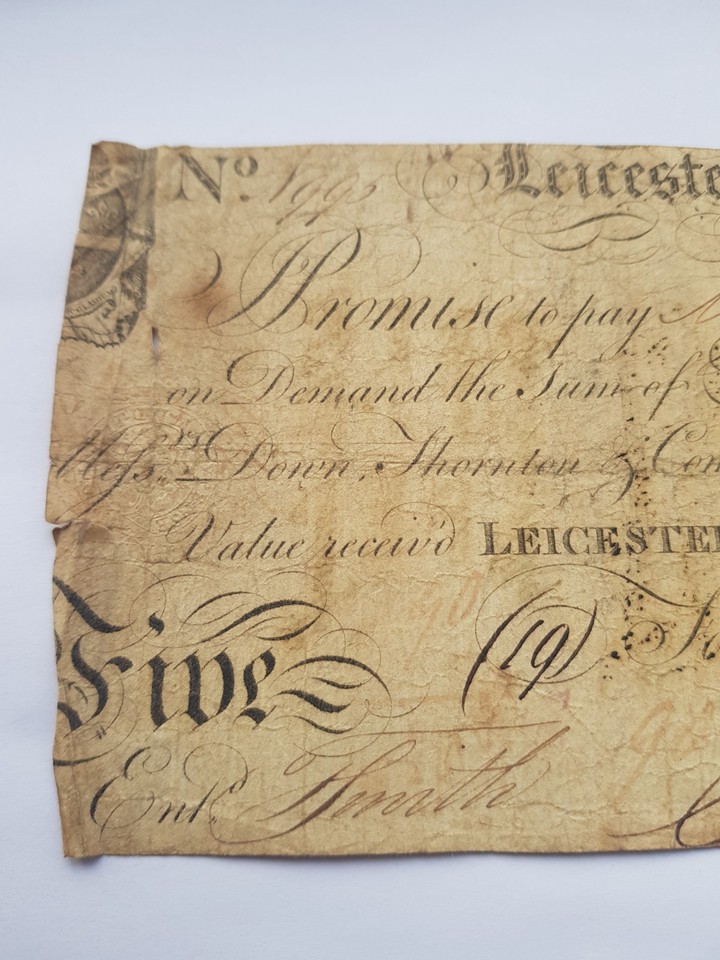 No. 1995 Leiceste
I Promise to pay
on Demand the Sum of
Mess.rs Down, Thornton & Com
Value receiv'd LEICESTER
(19)
Five
Ent.d Smith